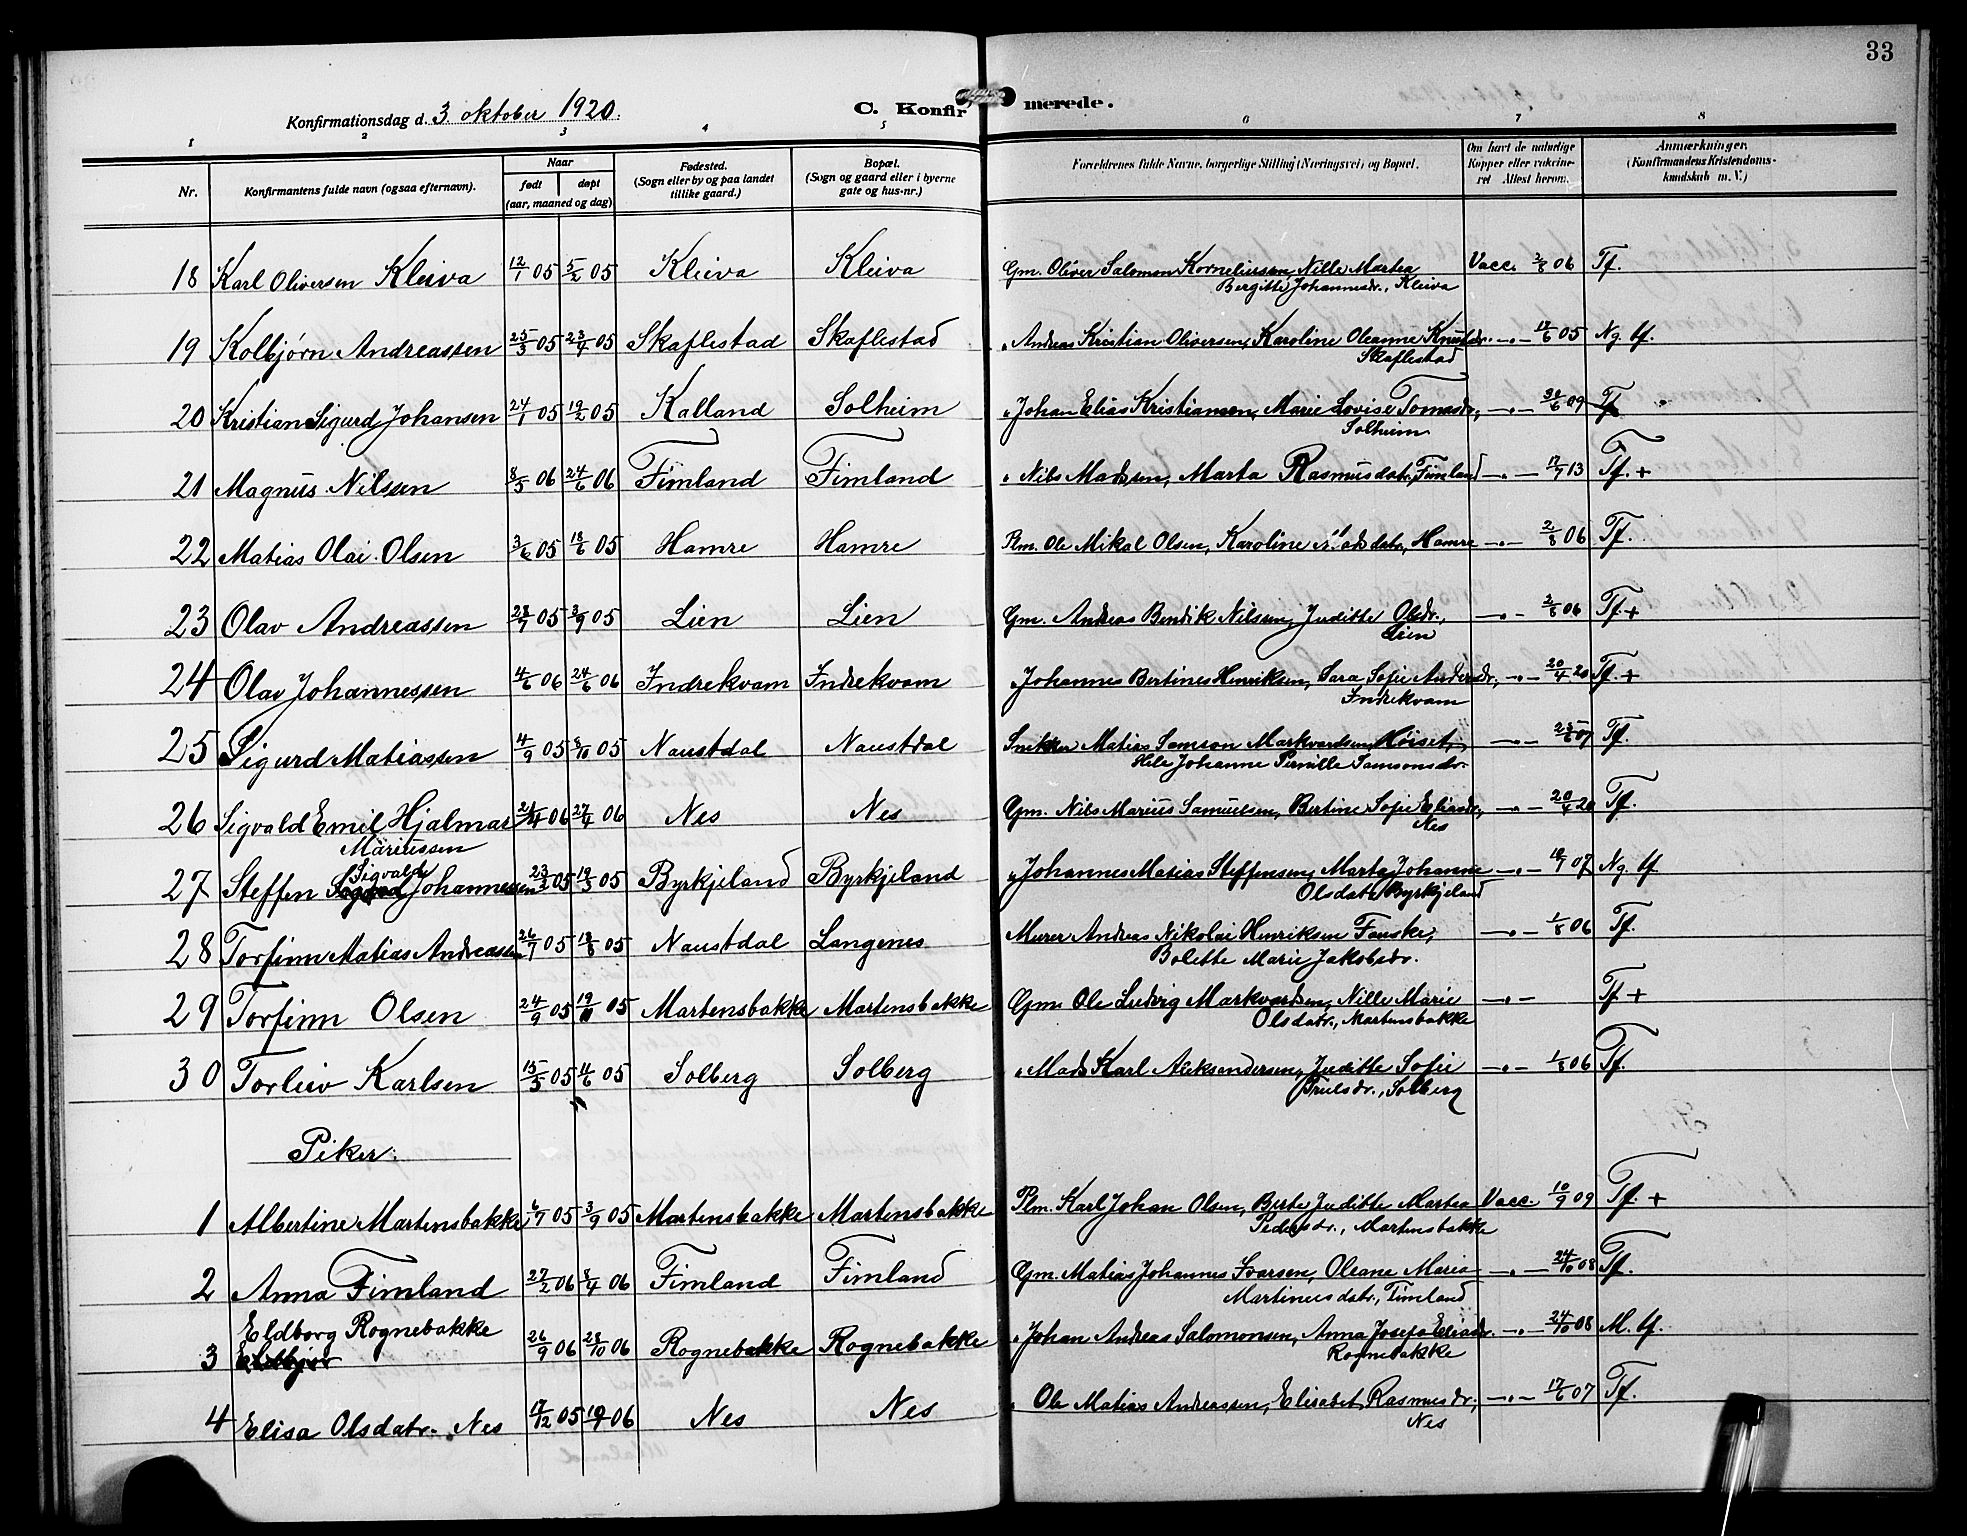 33
Konfirmationsdag d. 3. oktober 1920.
C. Konfirmerede.
1 2 3 4 5 6 7 8
Nr. Konfirmantens fulde navn (ogsaa efternavn). Naar født døpt (aar, maaned og dag) Fødested. (Sogn eller by og paa landet tillike gaard.) Bopæl. (Sogn og gaard eller i byerne gate og hus-nr.) Forældrenes fulde Navne, borgerlige Stilling (Næringsvei) og Bopæl. Om havt de naturlige Kopper eller vaccineret Attest herom. Anmærkninger. (Konfirmandens Kristendomskundskab m. V.)
18 Karl Oliversen Kleiva 12/1 05 5/2 05 Kleiva Kleiva Gm. Oliver Salomon Korneliussen, Nille Martea Vacc. 2/8 06 Tf.
Bergitte Johannesdr., Kleiva
19 Kolbjørn Andreassen 25/3 05 23/4 05 Skaflestad Skaflestad " Andreas Kristian Oliversen, Karoline Oleanne Knutsdr. —"— 18/6 05 Ng. tf.
Skaflestad
20 Kristian Sigurd Johansen 24/1 05 19/2 05 Kalland Solheim " Johan Elias Kristiansen, Marie Lovise Tomasdr., —"— 30/6 09 Tf
Solheim
21 Magnus Nilsen 8/5 06 24/6 06 Fimland Fimland " Nils Madssen, Marta Rasmusdatr., Fimland —"— 17/7 13 Tf. +
22 Matias Olai Olsen 3/6 05 18/6 05 Hamre Hamre Plm. Ole Mikal Olsen, Karoline Madsdatr., Hamre —"— 2/8 06 Tf.
23 Olav Andreassen 28/7 05 3/9 05 Lien Lien Gm. Andreas Bendik Nilsen, Juditte Olsdr., —"— 2/8 06 Tf. +
Lien
24 Olav Johannessen 4/6 06 24/6 06 Indrekvam Indrekvam " Johannes Bertines Henriksen, Sara Sofie Andersdr., —"— 20/4 20 Tf. +
Indrekvam
25 Sigurd Matiassen 4/9 05 8/10 05 Naustdal Naustdal Snikker Matias Samson Markvardsen Høiset, —"— 07 Tf.
Hele Johanne Pernille Samsonsdr.
26 Sigvald Emil Hjalmar 06 27/4 06 Nes Nes Gm. Nils Marius Samuelsen, Bertine Sofie Eliasdr., —"— 20/4 20 Tf.
Mariussen Nes
Sigvald
27 Steffen Johannessen 23/2 05 19/3 05 Byrkjeland Byrkjeland " Johannes Matias Steffensen, Marta Johanne —"— 07 Ng. tf
Olsdatr. Byrkjeland
28 Torfinn Matias Andreassen 26/7 05 13/8 05 Naustdal Langenes Murer Andreas Nikolai Henriksen Fauske, —"— 1/8 06 Tf.
Bolette Marie Jakobsdr.
29 Torfinn Olsen 24/9 05 19/11 05 Martensbakke Martensbakke Gm. Ole Ludvig Markvardsen, Nille Marie —"— Tf +
Olsdatr., Martensbakke
30 Torleiv Karlsen 15/5 05 11/6 05 Solberg Solberg " Mads Karl Aleksandersen, Juditte Sofie —"— 1/8 06 Tf.
Trulsdr., Solberg
Piker.
1 Albertine Martensbakke 6/7 05 3/9 05 Martensbakke Martensbakke Plm. Karl Johan Olsen, Berte Juditte Martea Vacc. 10/9 09 Tf. +
Pedersdr., Martensbakke
2 Anna Fimland 27/2 06 8/4 06 Fimland Fimland Gm. Matias Johannes Ivarsen, Oleane Marie —"— 24/10 08 Tf.
Martinusdatr., Fimland
Eldborg Rognebakke
3 26/9 06 28/10 06 Rognebakke Rognebakke " Johan Andreas Salomonsen, Anna Josefa Eliasdr. —"— 24/10 08 M. tf.
Rognebakke
4 Elisa Olsdatr. Nes 17/12 05 06 Nes Nes " Ole Matias Andreassen, Elisabet Rasmusdr., —"— 17/6 07 Tf.
Nes